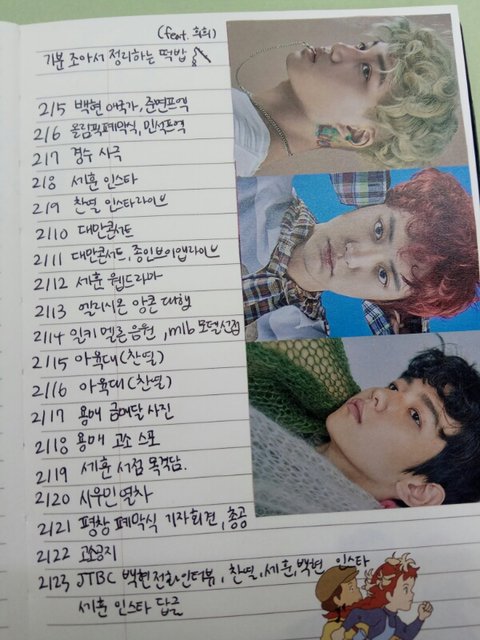 (feat. 희희)
기분 조아서 정리하는 떡밥
2/5 백현 애국가, 준면프역
2/6 올림픽폐막식, 민석프역
2/7 경수 사극
2/8 세훈 인스타
2/9 찬열 인스타라이브
2/10 대만콘서트
2/11 대만콘서트, 종인브이앱라이브
2/12 세훈 웹드라마
2/13 엘리시온 앙콘 대행
2/14 일키 멜론 음원, mlb 모델선정
2/15 아육대(찬열)
2/16 아육대(찬열)
2/17 용애 금메달 사진
2/18 용애 고소 스포
2/19 세훈 서점 목격담.
2/20 시우민 열차
2/21 평창 폐막식 기자회견, 총공
2/22 고소공지
2/23 JTBC 백현전화인터뷰, 찬열, 세훈, 백현 인스타
세훈 인스타 답글